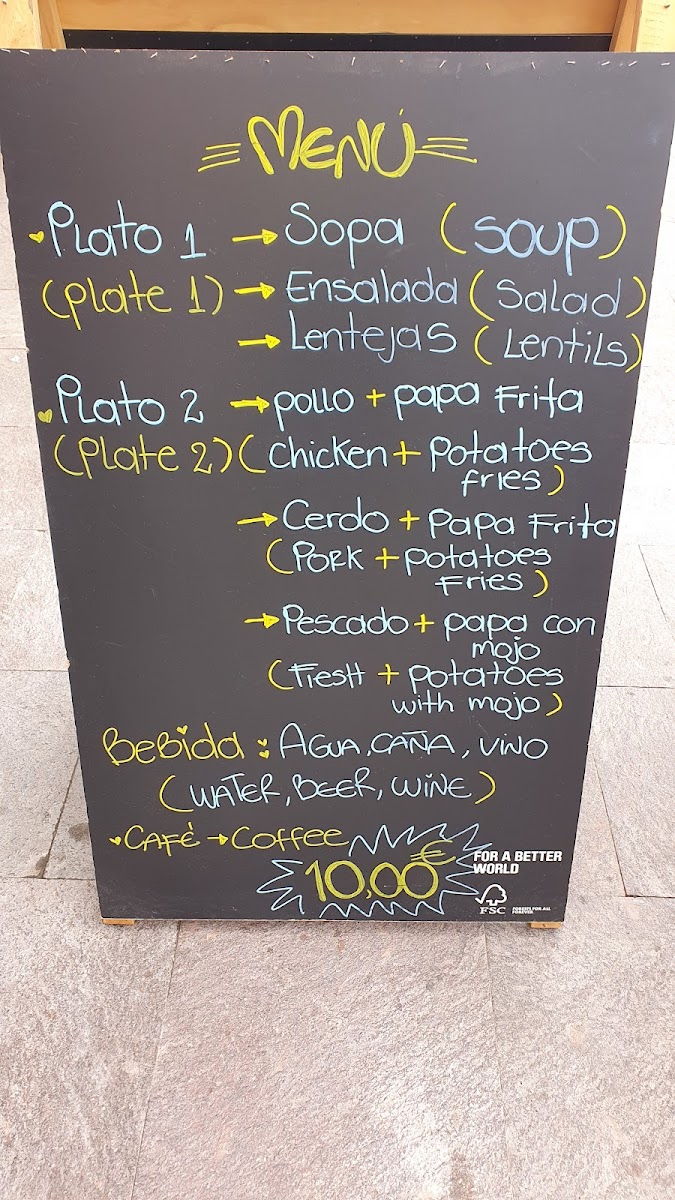 MENÚ
Plato 1 → Sopa (SOUP)
(Plate 1) → Ensalada (Salad)
→ Lentejas (Lentils)
Plato 2 → pollo + papa Frita
(Plate 2) (chicken + Potatoes
fries)
→ Cerdo + Papa Frita
(PORK + potatoes
Fries)
→ Pescado + papa con
mojo
(FiesH + potatoes
with mojo)
BeBida: AGUA, CAÑA, VINO
(WATER, BEER, WINE)
CAFÉ → Coffee
10,00€
FOR A BETTER
WORLD
FSC FORESTS FOR ALL
FOREVER